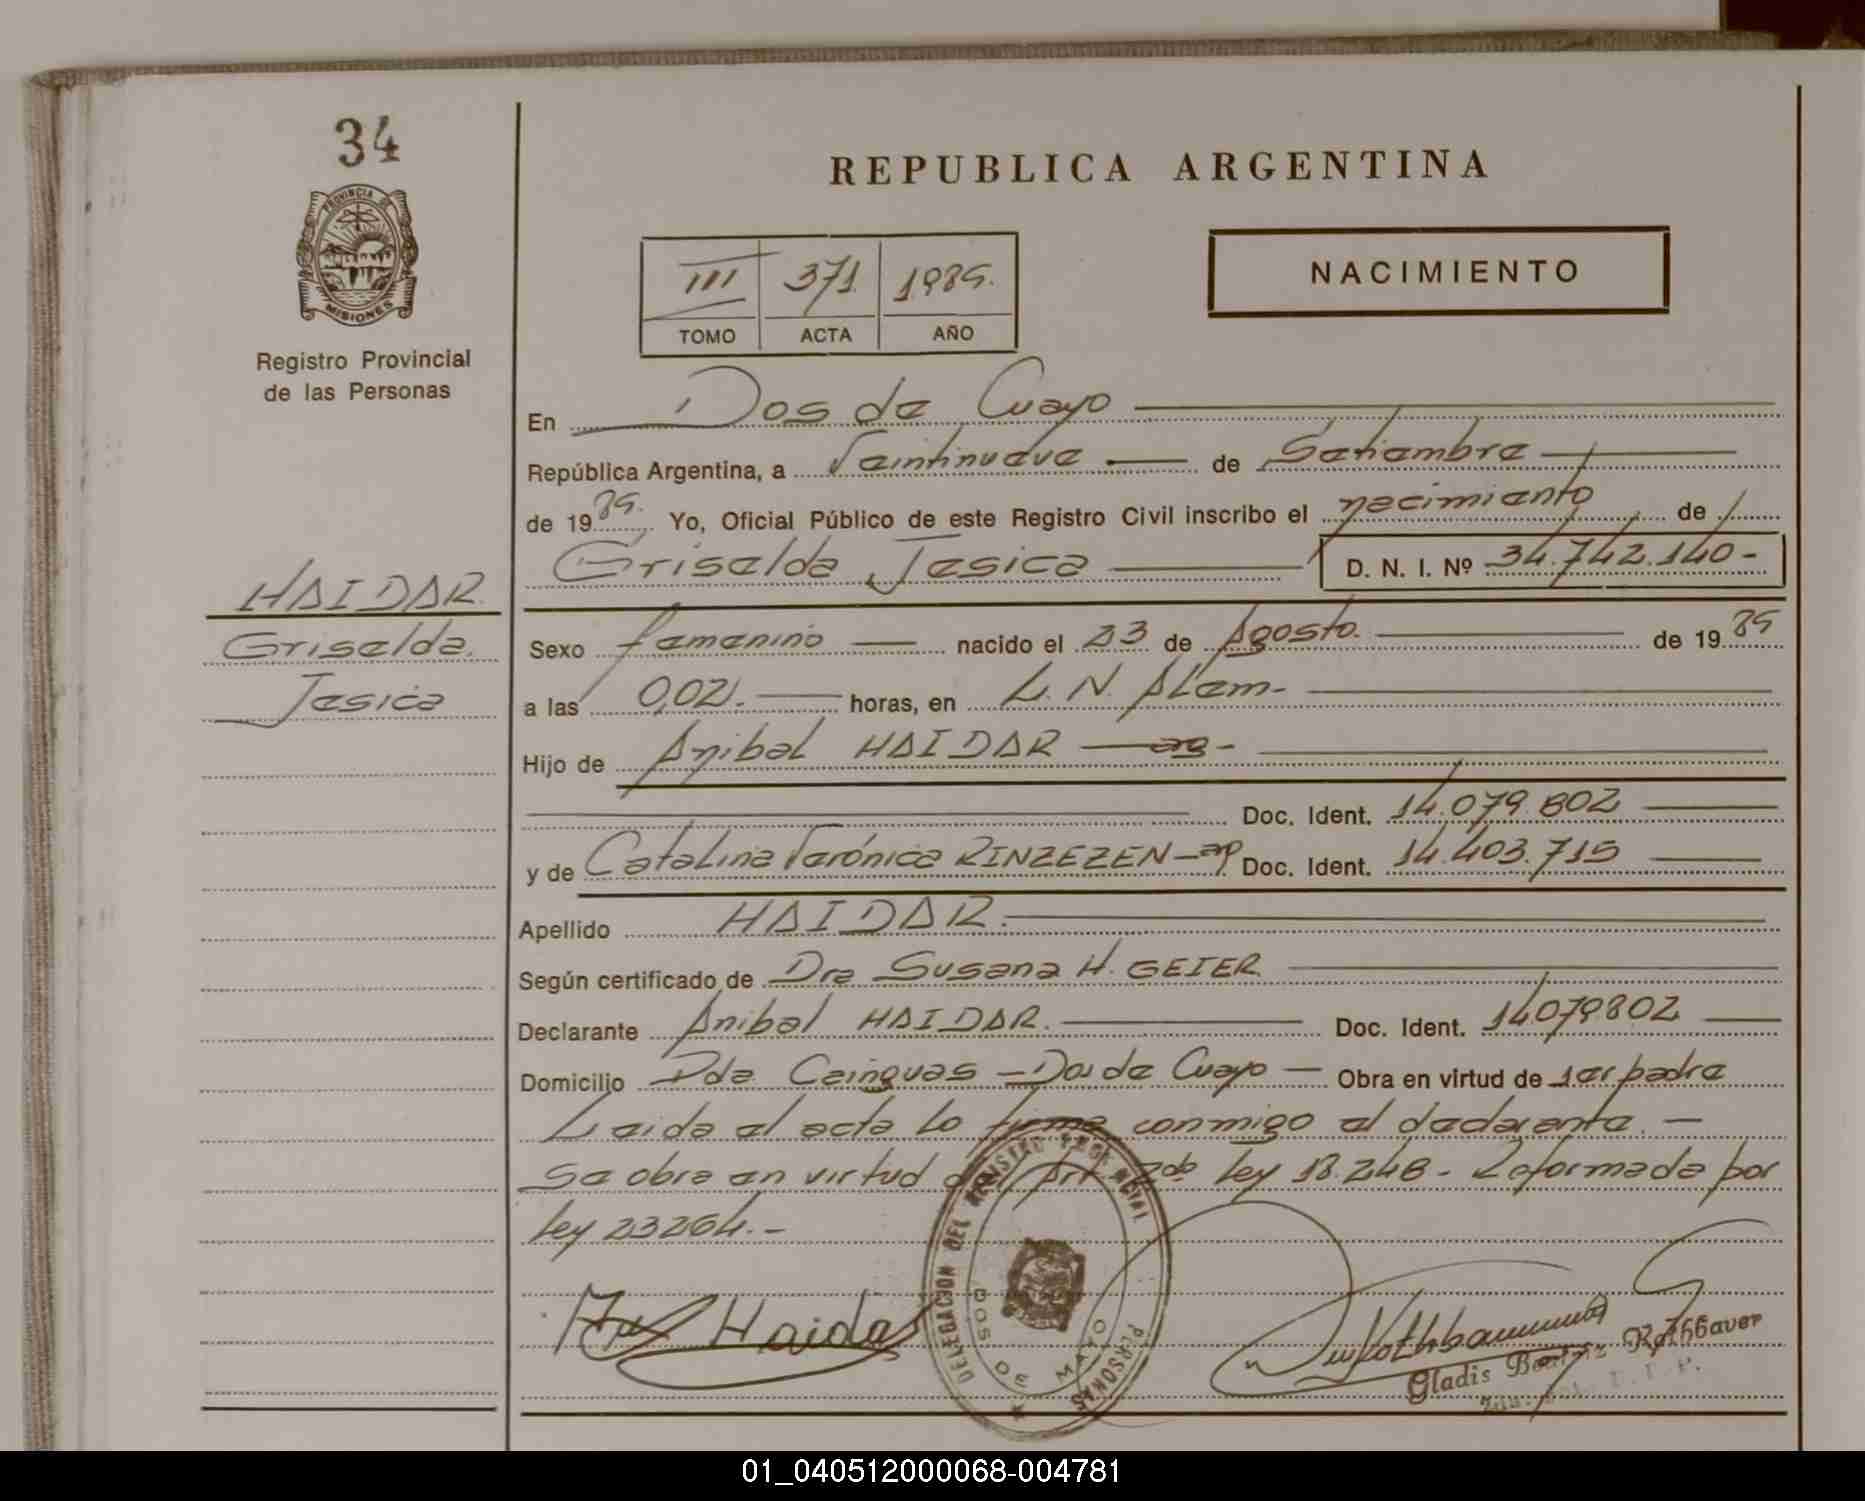 34
PROVINCIA DE
MISIONES
Registro Provincial
de las Personas
HAIDAR
Griselda
Jesica
REPUBLICA ARGENTINA
III 371 1989.
TOMO ACTA AÑO
NACIMIENTO
En Dos de Mayo
República Argentina, a Veintinueve de Setiembre
de 1989. Yo, Oficial Público de este Registro Civil inscribo el nacimiento de
Griselda Jesica D. N. I. Nº 34.742.140-
Sexo femenino nacido el 23 de Agosto. de 1989
a las 0,02. horas, en L. N. Alem-
Hijo de Anibal HAIDAR
Doc. Ident. 14.079.802
y de Catalina Verónica RINZEZEN Doc. Ident. 14.403.715
Apellido HAIDAR.
Según certificado de Dra Susana H. GEIER
Declarante Anibal HAIDAR. Doc. Ident. 14079802
Domicilio Pda. Cainguas - Dos de Mayo - Obra en virtud de ser padre
Leida el acta la firma conmigo el declarante. -
Se obra en virtud del Art 2do ley 18.248 - Reformada por
ley 23264.-
Haidar
DELEGACION DEL REGISTRO PROVINCIAL PERSONAS
DOS DE MAYO
Rothbauer
Gladis Beatriz Rothbaver
01_040512000068-004781